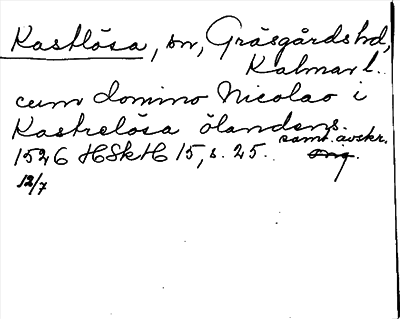 Kastlösa, sn, Gräsgårds hd,
Kalmar l.
cum domino Nicolao i
Kastrelösa ölandens.
samt. avskr.
1526 HSkH 15, s. 25. orig.
12/7